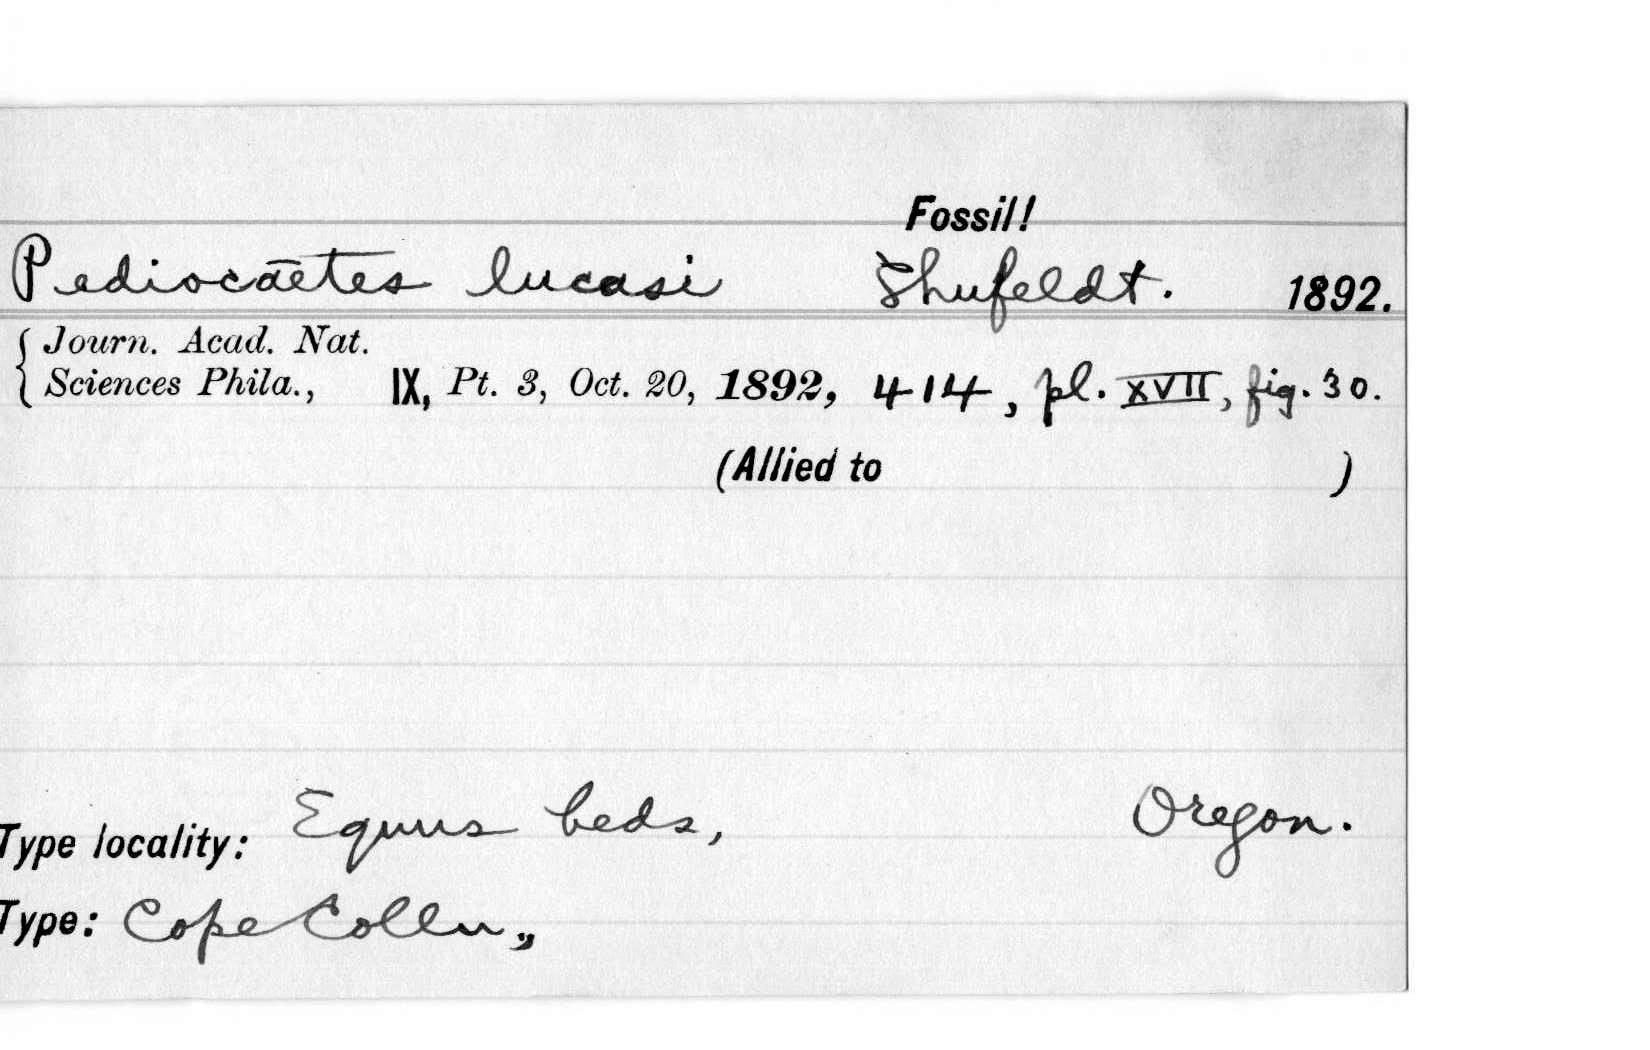 Fossil!
Pediocaetes lucasi Shufeldt. 1892.
Journ. Acad. Nat.
Sciences Phila., IX, Pt. 3, Oct. 20, 1892, 414, pl. XVII, fig. 30.
(Allied to )
Type locality: Equus beds, Oregon.
Type: Cope Colln.,